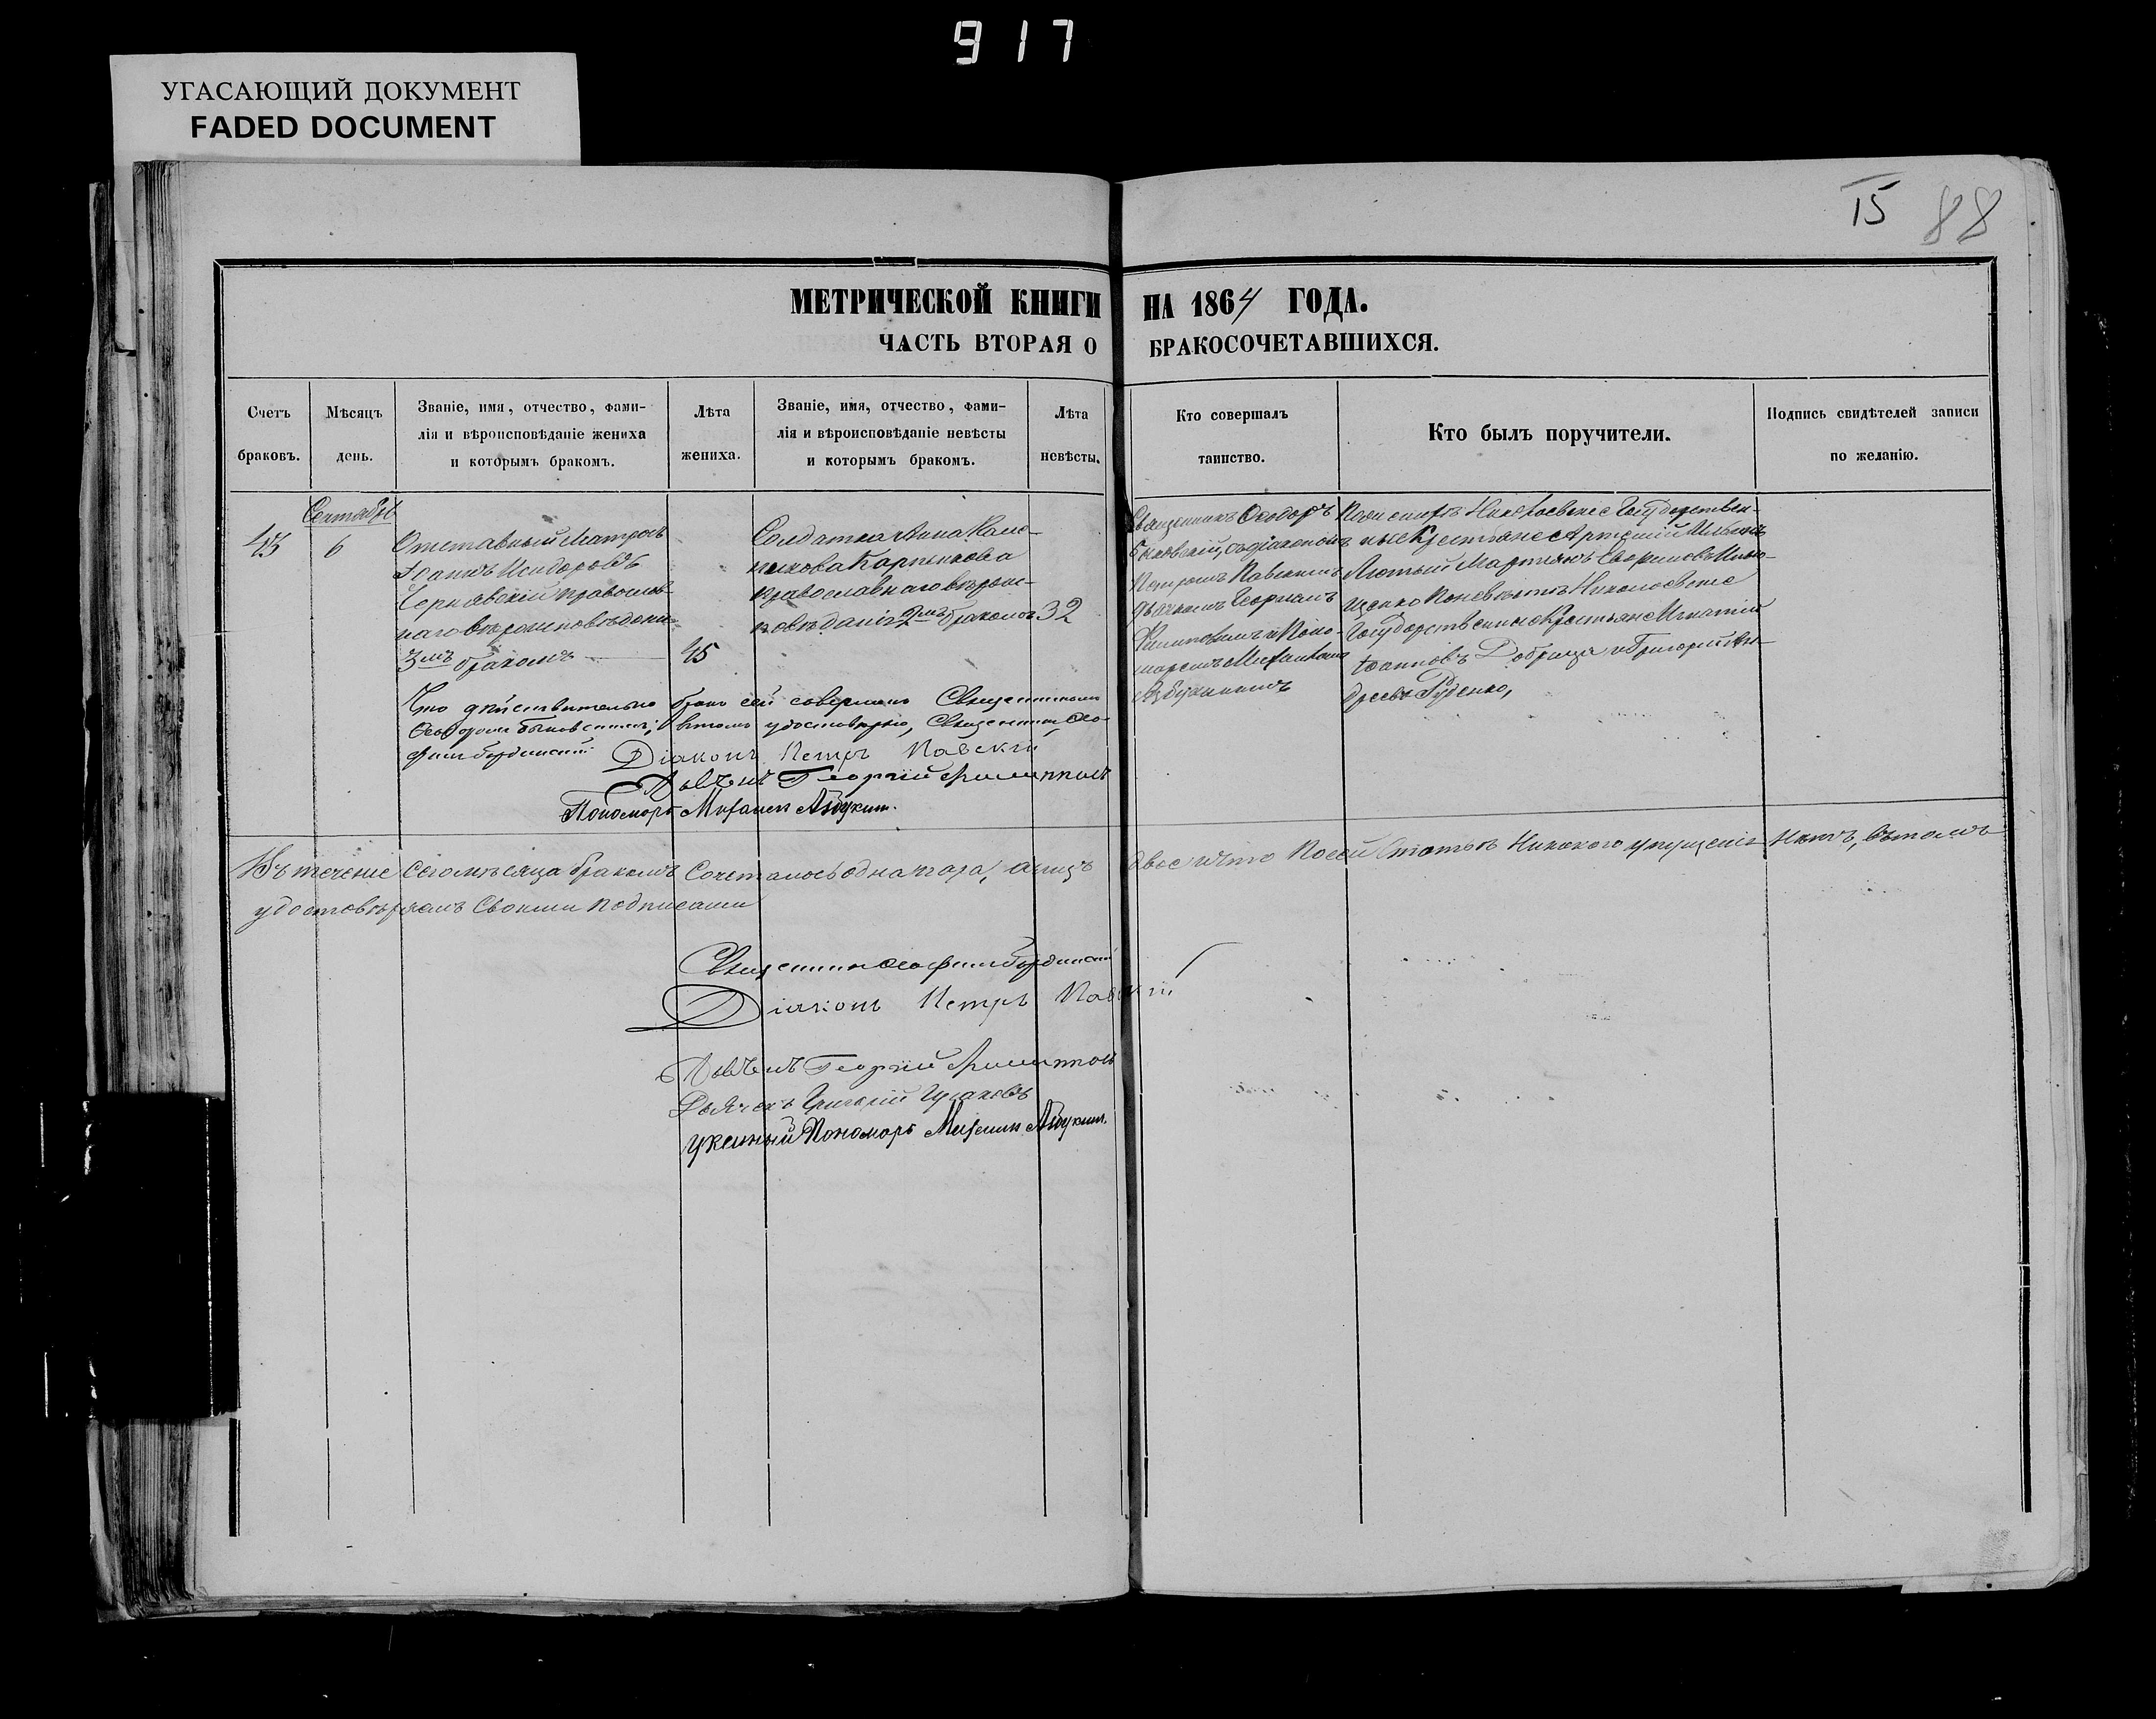 917
УГАСАЮЩИЙ ДОКУМЕНТ
FADED DOCUMENT
15 88
МЕТРИЧЕСКОЙ КНИГИ НА 1864 ГОДА.
ЧАСТЬ ВТОРАЯ О БРАКОСОЧЕТАВШИХСЯ.
Счетъ браковъ.
Мѣсяцъ день.
Званіе, имя, отчество, фами-
лія и вѣроисповѣданіе жениха
и которымъ бракомъ.
Лѣта жениха.
Званіе, имя, отчество, фами-
лія и вѣроисповѣданіе невѣсты
и которымъ бракомъ.
Лѣта невѣсты.
Кто совершалъ
таинство.
Кто былъ поручители.
Подпись свидѣтелей записи
по желанію.
Сентябрь
6
Отставный Матрозъ
Іоаннъ Исидоровъ
Чернявскій православ-
наго вѣроисповѣданія
3мъ бракомъ
45
Солдатка Анна
Карпенкова
православнаго вѣроис-
повѣданія 2мъ бракомъ
32
Священникъ Ѳеодоръ
Быковскій, съ діакономъ
Петромъ Павскимъ
Георгіемъ
Филиповымъ и Поно-
маремъ Михаиломъ
Азбукинымъ
Николаевскіе Государствен-
ные Крестьяне Артемій
Лютый Мартинъ
щенко По невѣстѣ Николаевскіе
Государственные Крестьяне Игнатій
Іоанновъ Добрица и Григорій Ан-
дреевъ Руденко,
Что дѣйствительно бракъ сей совершенъ Священникомъ
Ѳеодоромъ Быковскимъ; въ томъ удостовѣряю, Священникъ Ѳео-
филъ
Діаконъ Петръ Павскій
Дьячекъ Георгій Филипповъ
Пономарь Михаилъ Азбукинъ.
Въ теченіе сего мѣсяца бракомъ Сочеталось одна пара, а лицъ двое и что по сей Статьѣ Никакого упущенія Нѣтъ, въ томъ
удостовѣряемъ Своими подписами
Священникъ Ѳеофилъ
Діаконъ Петръ Павскій
Дьячекъ Георгій Филипповъ
Дьячекъ Григорій
Указный Пономарь Михаилъ Азбукинъ.